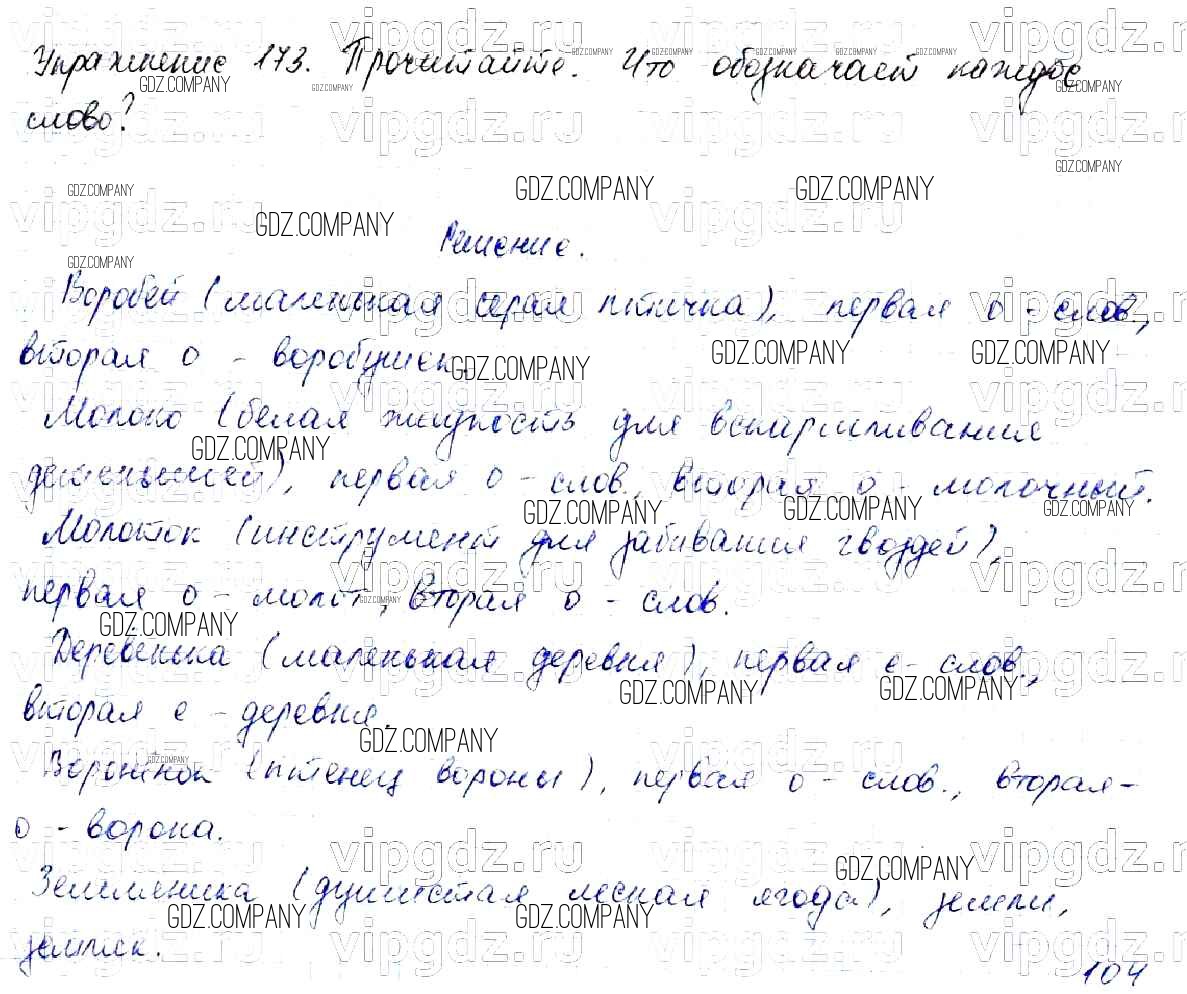 Упражнение 173. Прочитайте. Что обозначает каждое
слово?
Решение.
Воробей (маленькая серая птичка), первая о - слов.,
вторая о - воробушек.
Молоко (белая жидкость для вскармливания
детенышей), первая о - слов., вторая о - молочный.
Молоток (инструмент для забивания гвоздей),
первая о - молот, вторая о - слов.
Деревенька (маленькая деревня), первая е - слов.,
вторая е - деревня.
Воронёнок (птенец вороны), первая о - слов., вторая -
о - ворона.
Земляника (душистая лесная ягода), земли,
земляк.
104
vipgdz.ru
GDZ.COMPANY